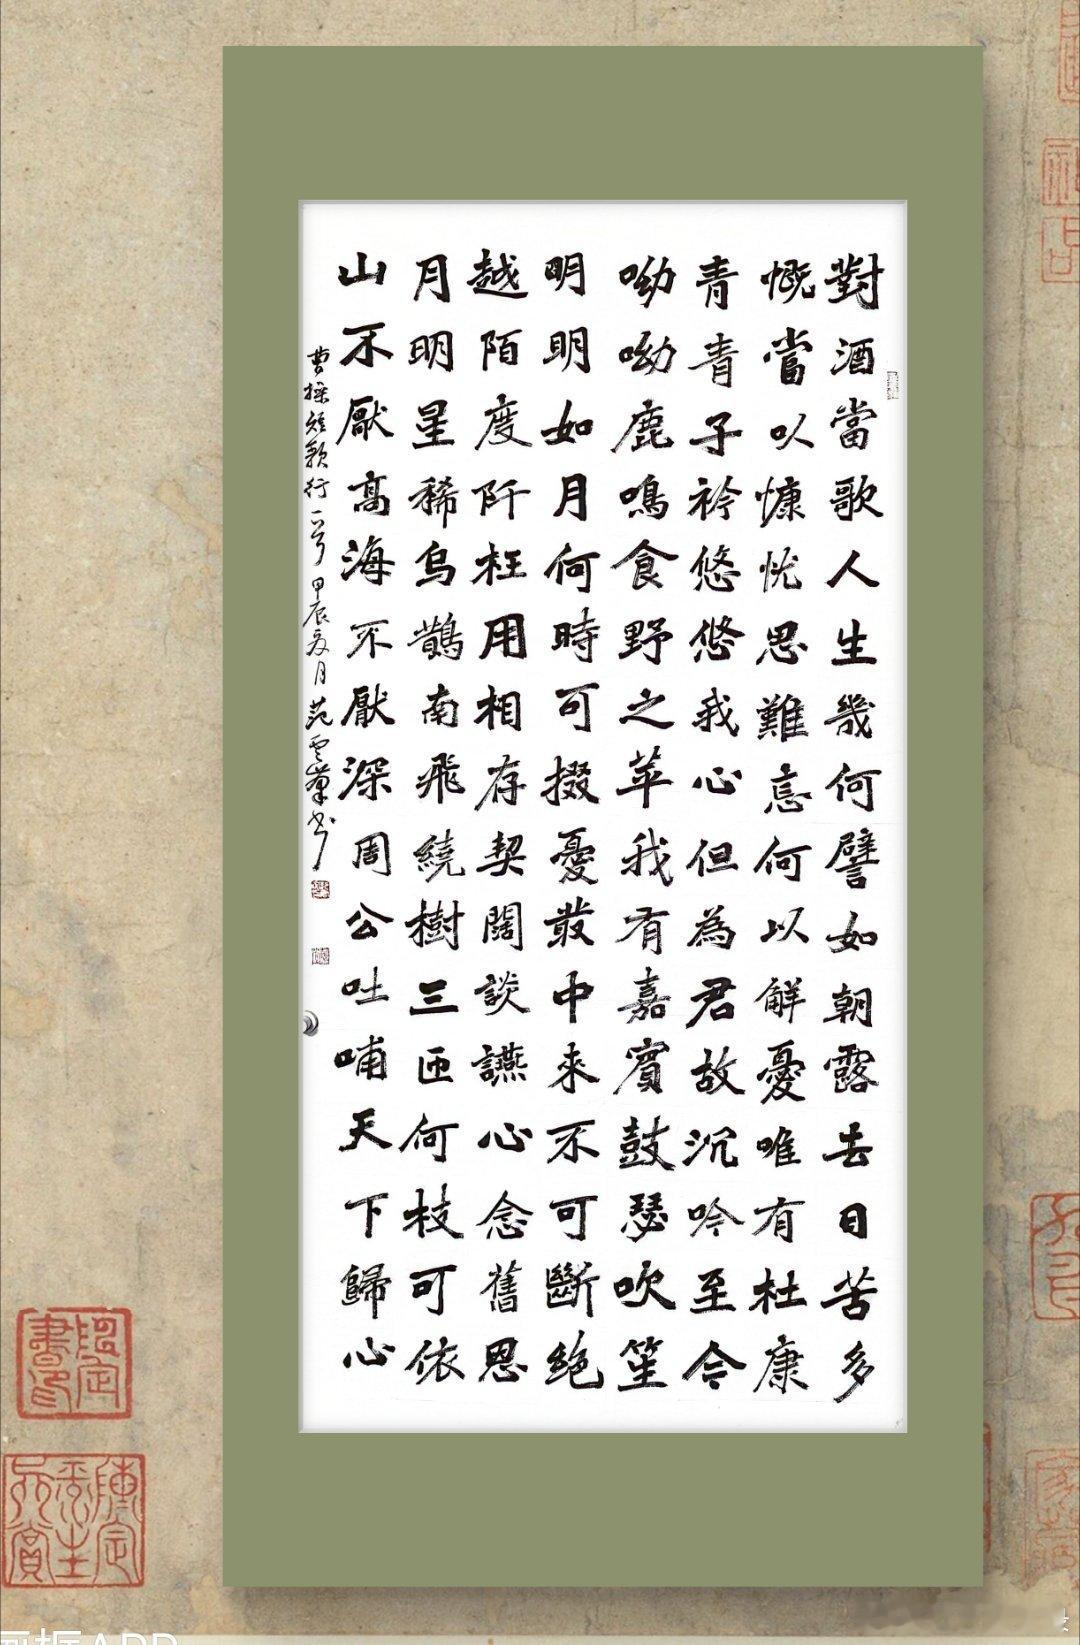 對酒當歌人生幾何譬如朝露去日苦多
慨當以慷忧思難忘何以解憂唯有杜康
青青子衿悠悠我心但為君故沉吟至今
呦呦鹿鳴食野之苹我有嘉賓鼓瑟吹笙
明明如月何時可掇憂叢中來不可斷絶
越陌度阡枉用相存契闊談讌心念舊恩
月明星稀烏鵲南飛繞樹三匝何枝可依
山不厭高海不厭深周公吐哺天下歸心
曹操短歌行一首甲辰夏月范雲書
画框APP